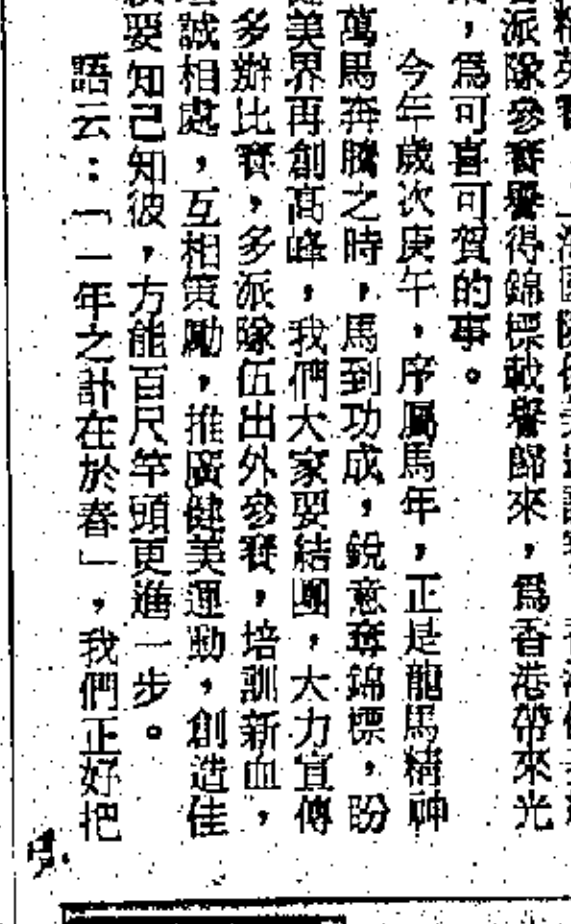 派隊參賽譽得錦標載譽歸來，爲香港帶來光
，爲可喜可賀的事。
今年歲次庚午，序屬馬年，正是龍馬精神
萬馬奔騰之時，馬到功成，銳意奪錦標，盼
美界再創高峰，我們大家要結團，大力宣傳
多辦比賽，多派隊伍出外參賽，培訓新血，
誠相處，互相策勵，推廣健美運動，創造佳
要知己知彼，方能百尺竿頭更進一步。
語云：「一年之計在於春」，我們正好把